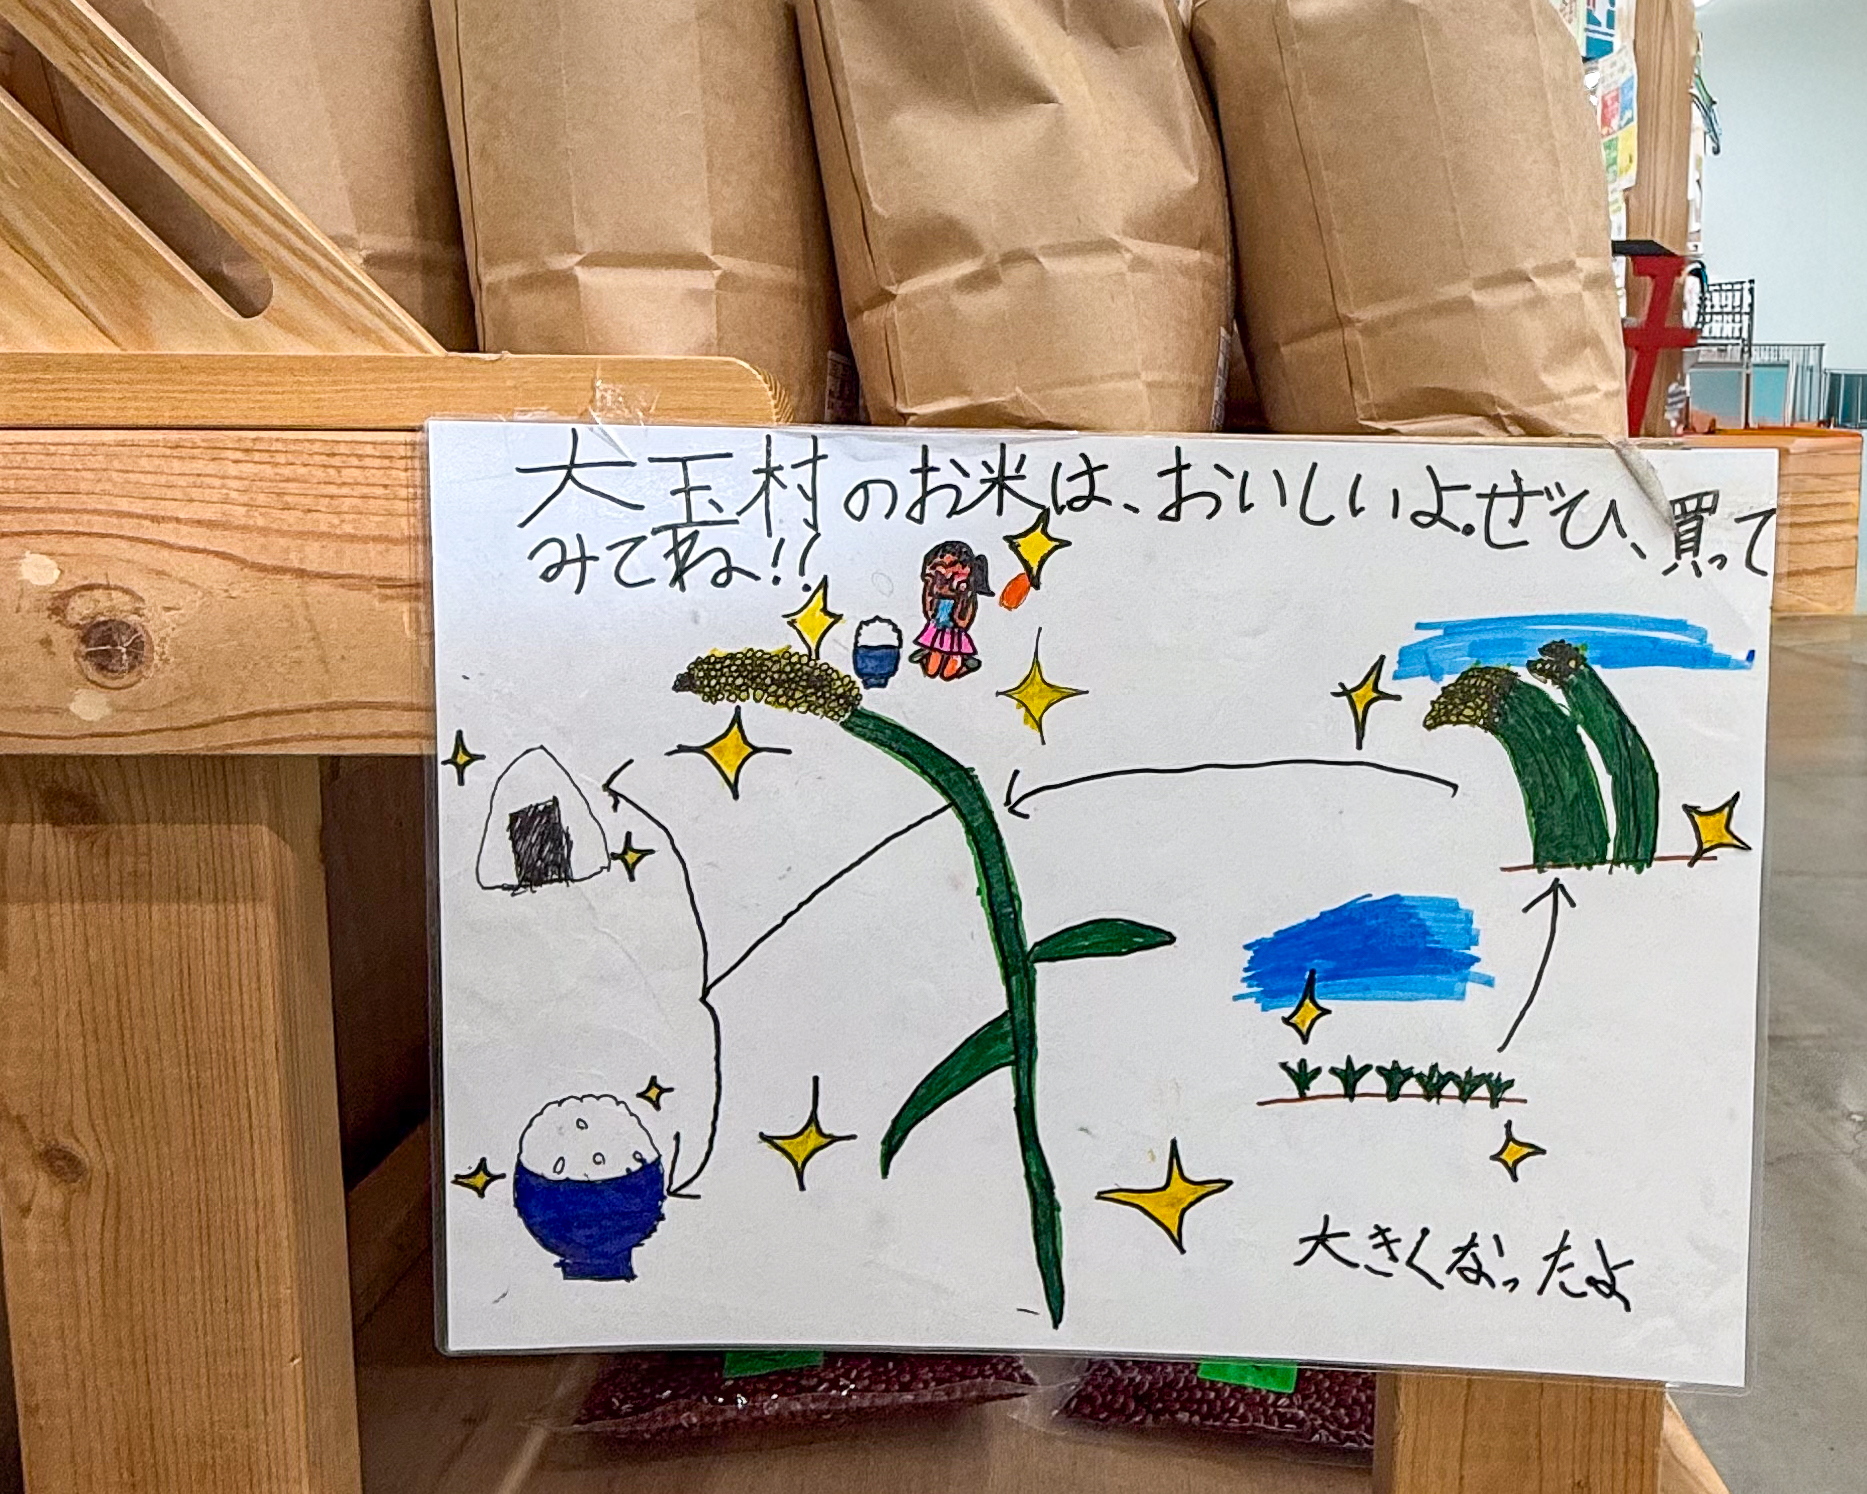 大玉村のお米は、おいしいよ。ぜひ、買って
みてね!!
大きくなったよ